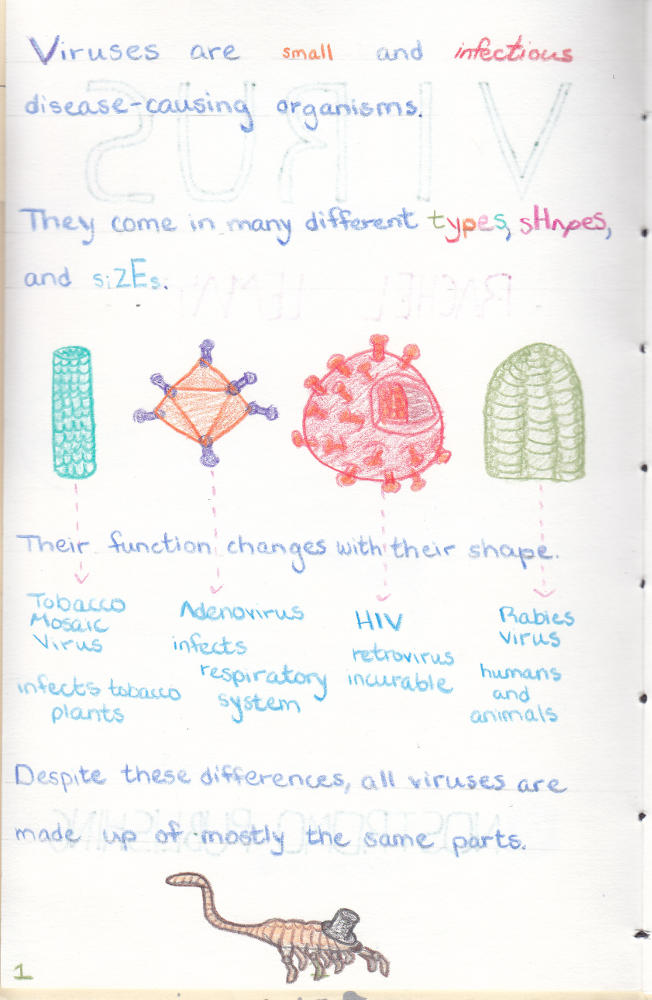 Viruses are small and infectious
disease-causing organisms.
They come in many different types, sHApes,
and siZEs.
Their function changes with their shape.
Tobacco
Mosaic
Virus
infects tobacco
plants
Adenovirus
infects
respiratory
system
HIV
retrovirus
incurable
Rabies
virus
humans
and
animals
Despite these differences, all viruses are
made up of mostly the same parts.
1